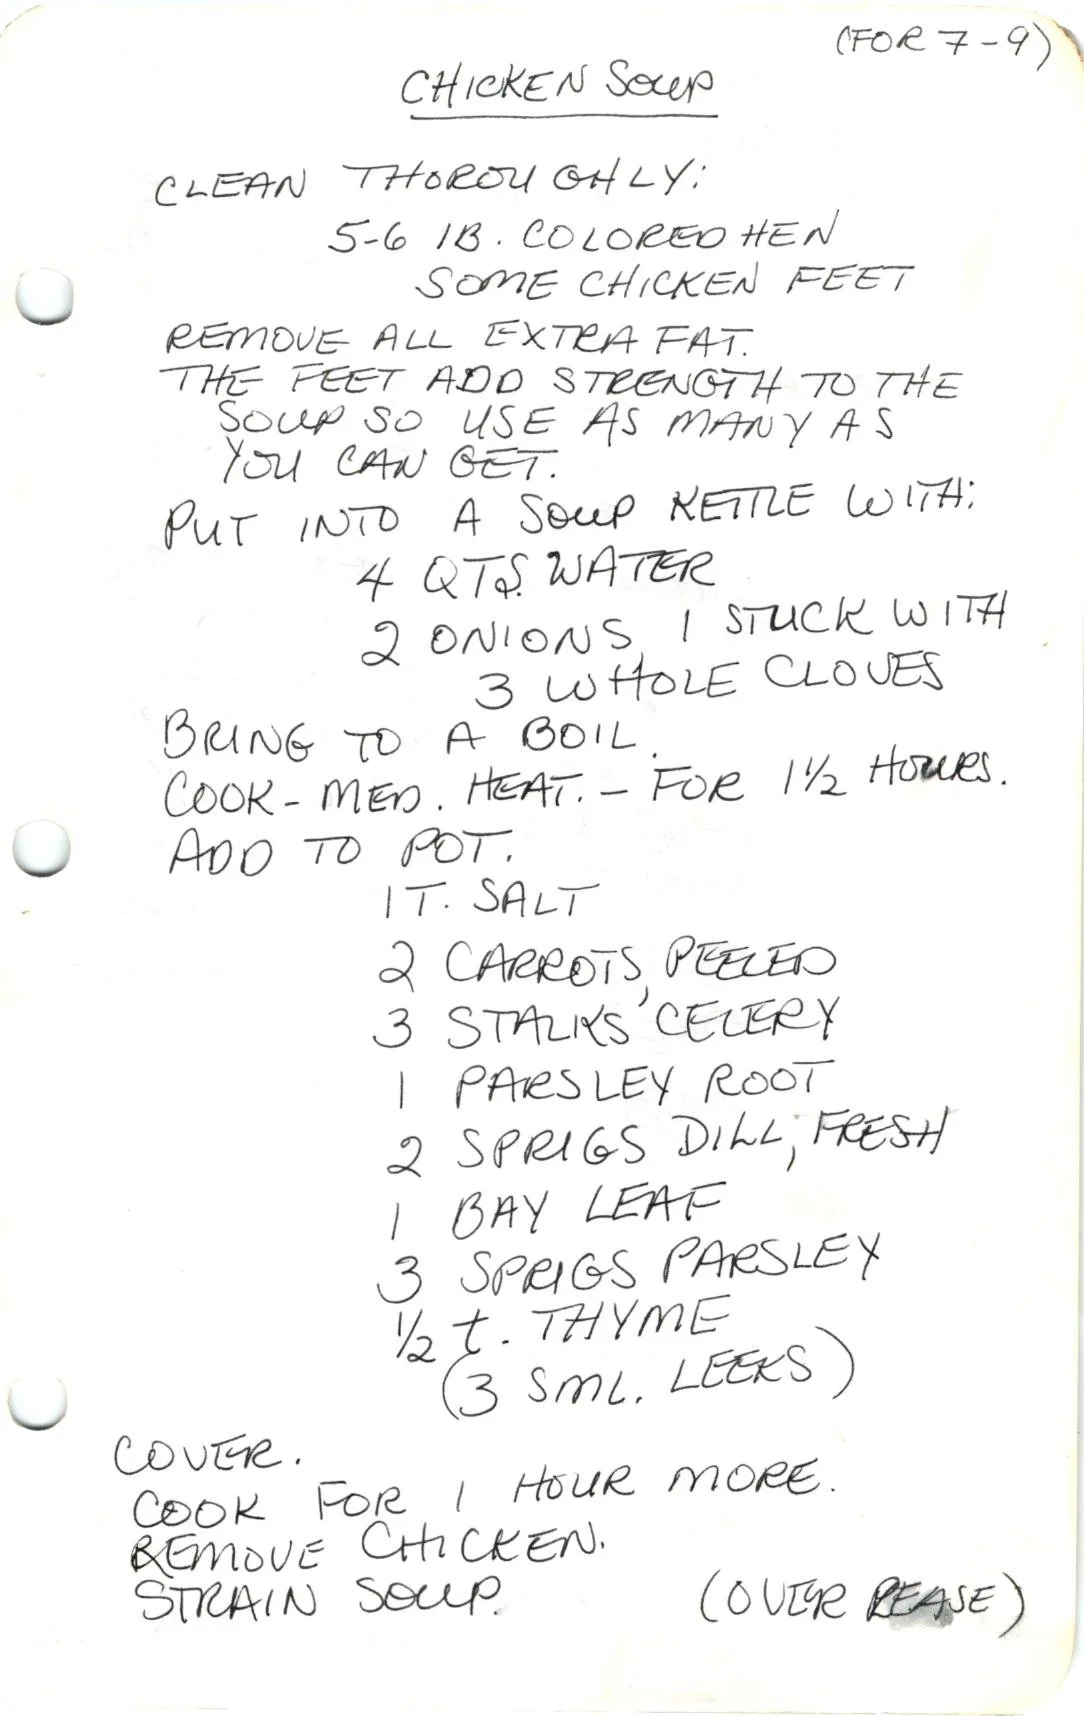 (FOR 7-9)
CHICKEN SOUP
CLEAN THOROUGHLY:
5-6 lB. COLORED HEN
SOME CHICKEN FEET
REMOVE ALL EXTRA FAT.
THE FEET ADD STRENGTH TO THE
SOUP SO USE AS MANY AS
YOU CAN GET.
PUT INTO A SOUP KETTLE WITH:
4 QTS. WATER
2 ONIONS, 1 STUCK WITH
3 WHOLE CLOVES
BRING TO A BOIL.
COOK - MED. HEAT. - FOR 1 1/2 HOURS.
ADD TO POT.
1 T. SALT
2 CARROTS, PEELED
3 STALKS CELERY
1 PARSLEY ROOT
2 SPRIGS DILL, FRESH
1 BAY LEAF
3 SPRIGS PARSLEY
1/2 t. THYME
(3 SML. LEEKS)
COVER.
COOK FOR 1 HOUR MORE.
REMOVE CHICKEN.
STRAIN SOUP.
(OVER PEASE)